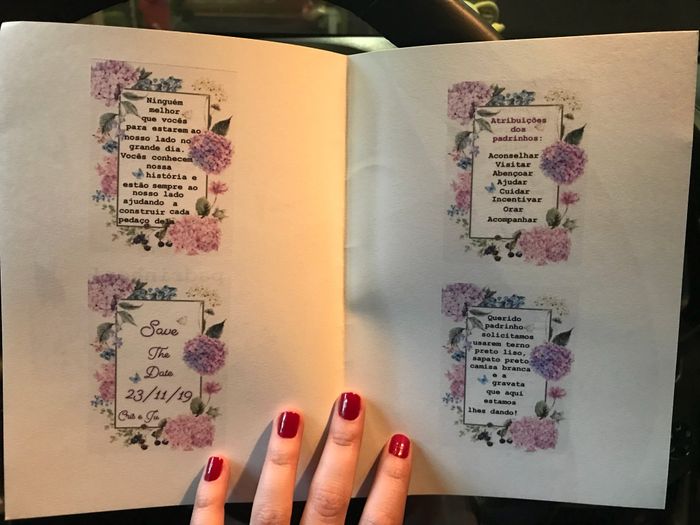 Ninguém
melhor
que vocês
para estarem ao
nosso lado no
grande dia.
Vocês conhecem
nossa
história e
estão sempre ao
nosso lado
ajudando a
construir cada
pedaço dela
Save
The
Date
23/11/19
Cris e Ju
Atribuições
dos
padrinhos:
Aconselhar
Visitar
Abençoar
Ajudar
Cuidar
Incentivar
Orar
Acompanhar
Querido
padrinho
solicitamos
usarem terno
preto liso,
sapato preto
camisa branca
e a
gravata
que aqui
estamos
lhes dando!